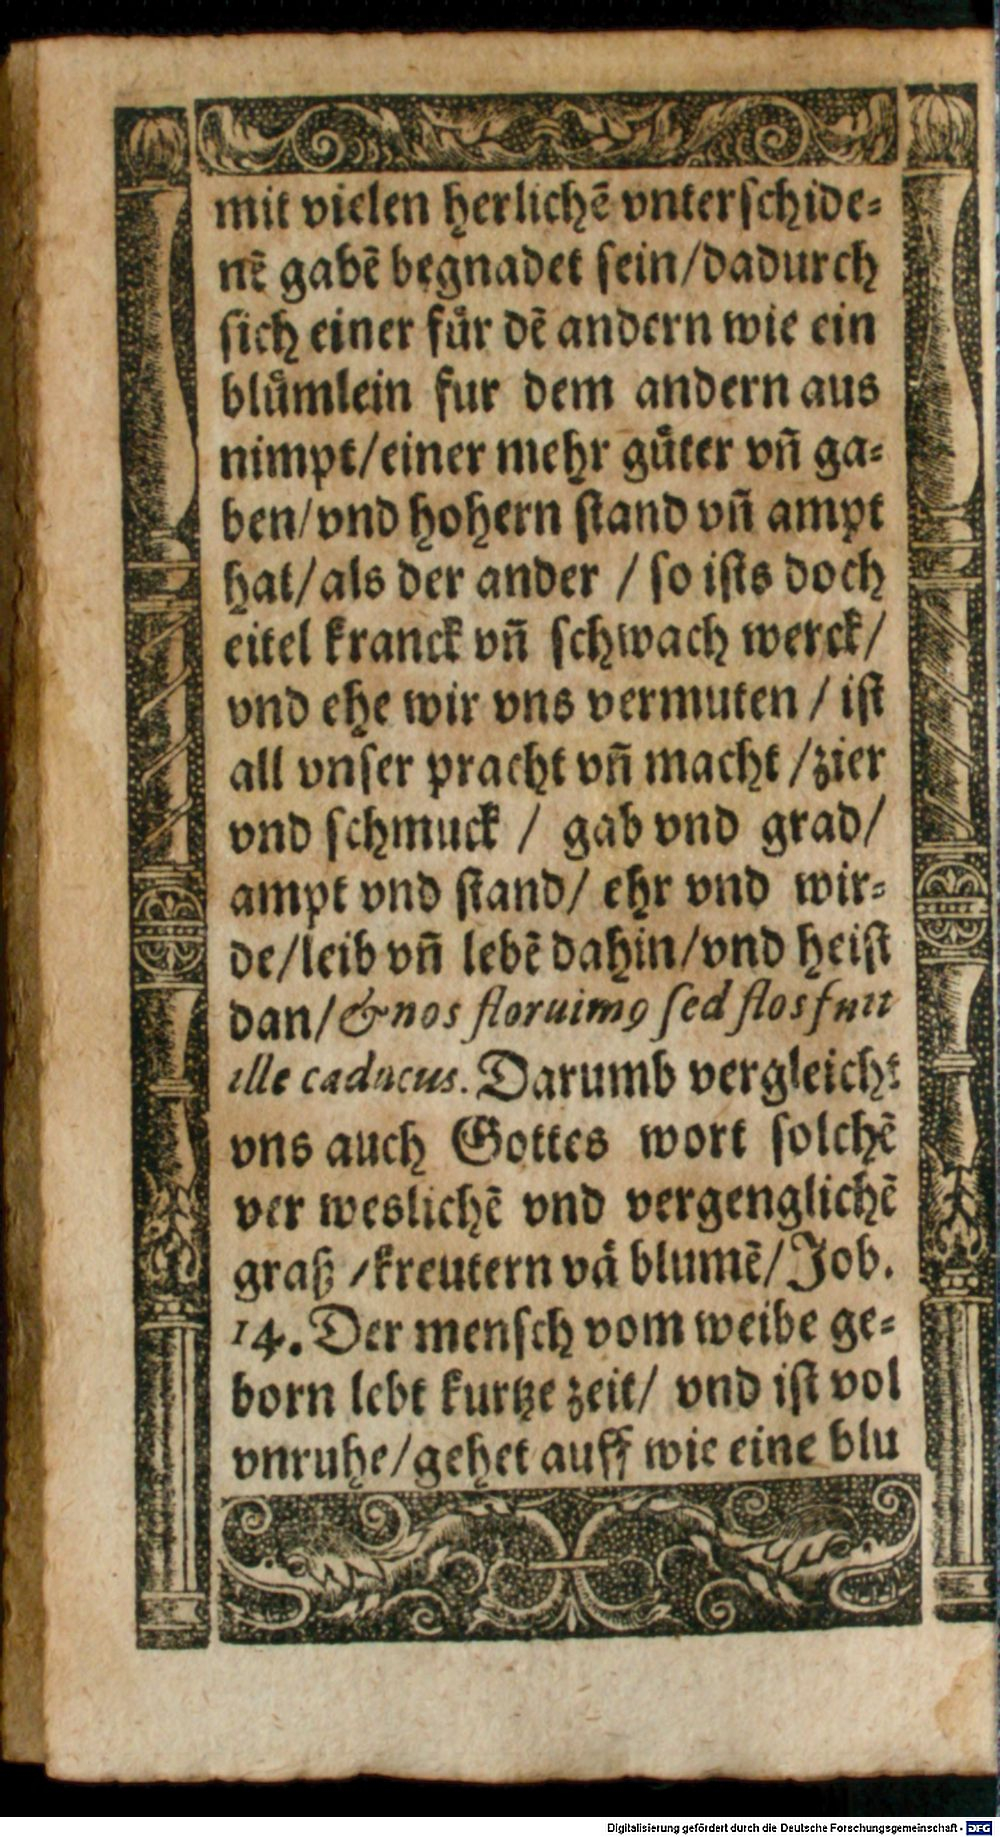 mit vielen herlichẽ vnterschide⸗
nẽ gabẽ begnadet sein/dadurch
sich einer fuͤr dẽ andern wie ein
bluͤmlein fur dem andern aus
nimpt/einer mehr guͤter vn̄ ga⸗
ben/vnd hohern stand vn̄ ampt
hat/als der ander / so ists doch
eitel kranck vn̄ schwach werck/
vnd ehe wir vns vermuten / ist
all vnser pracht vn̄ macht /zier
vnd schmuck / gab vnd grad/
ampt vnd stand/ ehr vnd wir⸗
de/leib vn̄ lebẽ dahin/vnd heist
dan/& nos floruimꝰ sed flos fuit
ille caducus. Darumb vergleicht
vns auch Gottes wort solchẽ
ver weslichẽ vnd vergenglichẽ
graß /kreutern vā blumẽ/Job.
14. Der mensch vom weibe ge⸗
born lebt kurtze zeit/ vnd ist vol
vnruhe/gehet auff wie eine blu
Digitalisierung gefördert durch die Deutsche Forschungsgemeinschaft - DFG